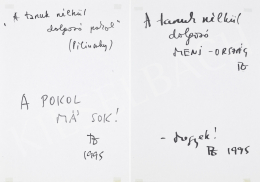 "A tanuk nélkül
dolgozó pokol"
(Pilinszky)
A POKOL
MÁ' SOK!
1995
A tanuk nélkül
dolgozó
MENJ-ORSZÁG
- megyek!
1995